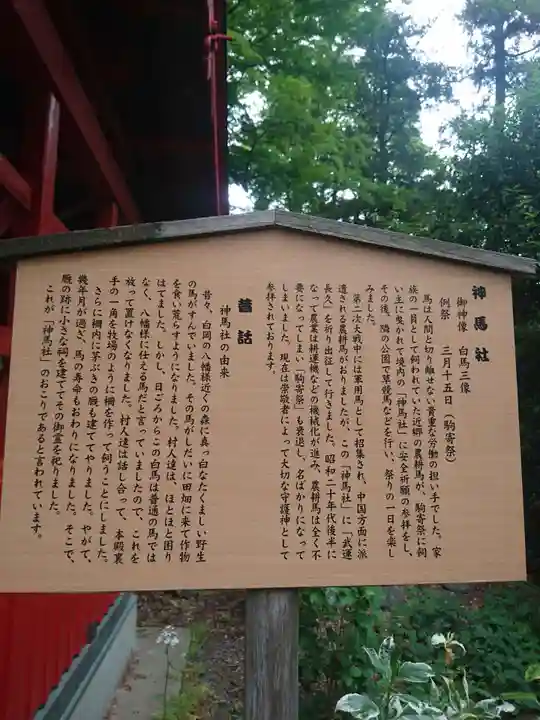 神馬社
御神像 白馬三像
例祭 三月十五日(駒寄祭)
馬は人間と切り離せない貴重な労働の担い手でした。家
族の一員として飼われていた近郷の農耕馬が、駒寄祭に飼
い主に曳かれて境内の「神馬社」に安全祈願の参拝をし、
その後、隣の公園で草競馬などを行い、祭りの一日を楽し
みました。
第二次大戦中には軍用馬として招集され、中国方面に派
遣される農耕馬がおりましたが、この「神馬社」に「武運
長久」を祈り出征して行きました。昭和二十年代後半に
なって農業は耕運機などの機械化が進み、農耕馬は全く不
要になってしまい「駒寄祭」も衰退し、名ばかりになって
しまいました。現在は崇敬者によって大切な守護神として
参拝されております。
昔話
神馬社の由来
昔々、白岡の八幡様近くの森に真っ白なたくましい野生
の馬がすんでいました。その馬がしだいに田畑に来て作物
を食い荒らすようになりました。村人達は、ほとほと困り
はてました。しかし、日ごろからこの白馬は普通の馬では
なく、八幡様に仕える馬だと言っていましたので、これを
放って置けなくなりました。村人達は話し合って、本殿裏
手の一角を牧場のように柵を作って飼うことにしました。
さらに柵内に茅ぶきの厩も建ててやりました。やがて、
幾年月が過ぎ、馬の寿命もおわりになりました。そこで、
厩の跡に小さな祠を建ててその御霊を祀りました。
これが「神馬社」のおこりであると言われています。